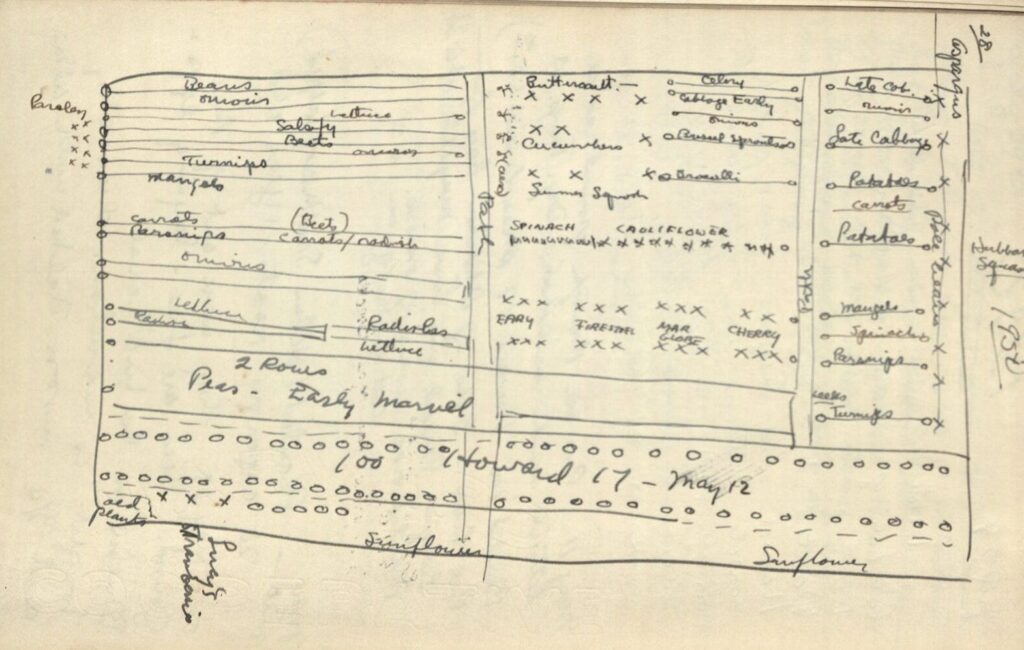 28
Beans
onions
lettuce
Parsley
Salsify
Beets
onions
Turnips
mangels
carrots
(Beets)
Parsnips
carrots/radish
onions
lettuce
Radish
Radishes
lettuce
2 Rows
Peas - Early Marvel
Path
Buttercult. —
Cucumbers
Summer Squash
Celery
Cabbage Early
onions
Brussel Sprouts
Brocolli
SPINACH
CAULIFLOWER
EARY
FIRESTEEL
MAR
GLOBE
CHERRY
Path
Late Cab.
onions
Late Cabbage
Potatoes
carrots
Potatoes
mangels
Spinach
Parsnips
Leeks
Turnips
Asparagus
Pole Beans
Hubbard
Squash
100 Howard 17 - May 12
old
plants
Lucy's
Strawberries
Sunflower
Sunflower